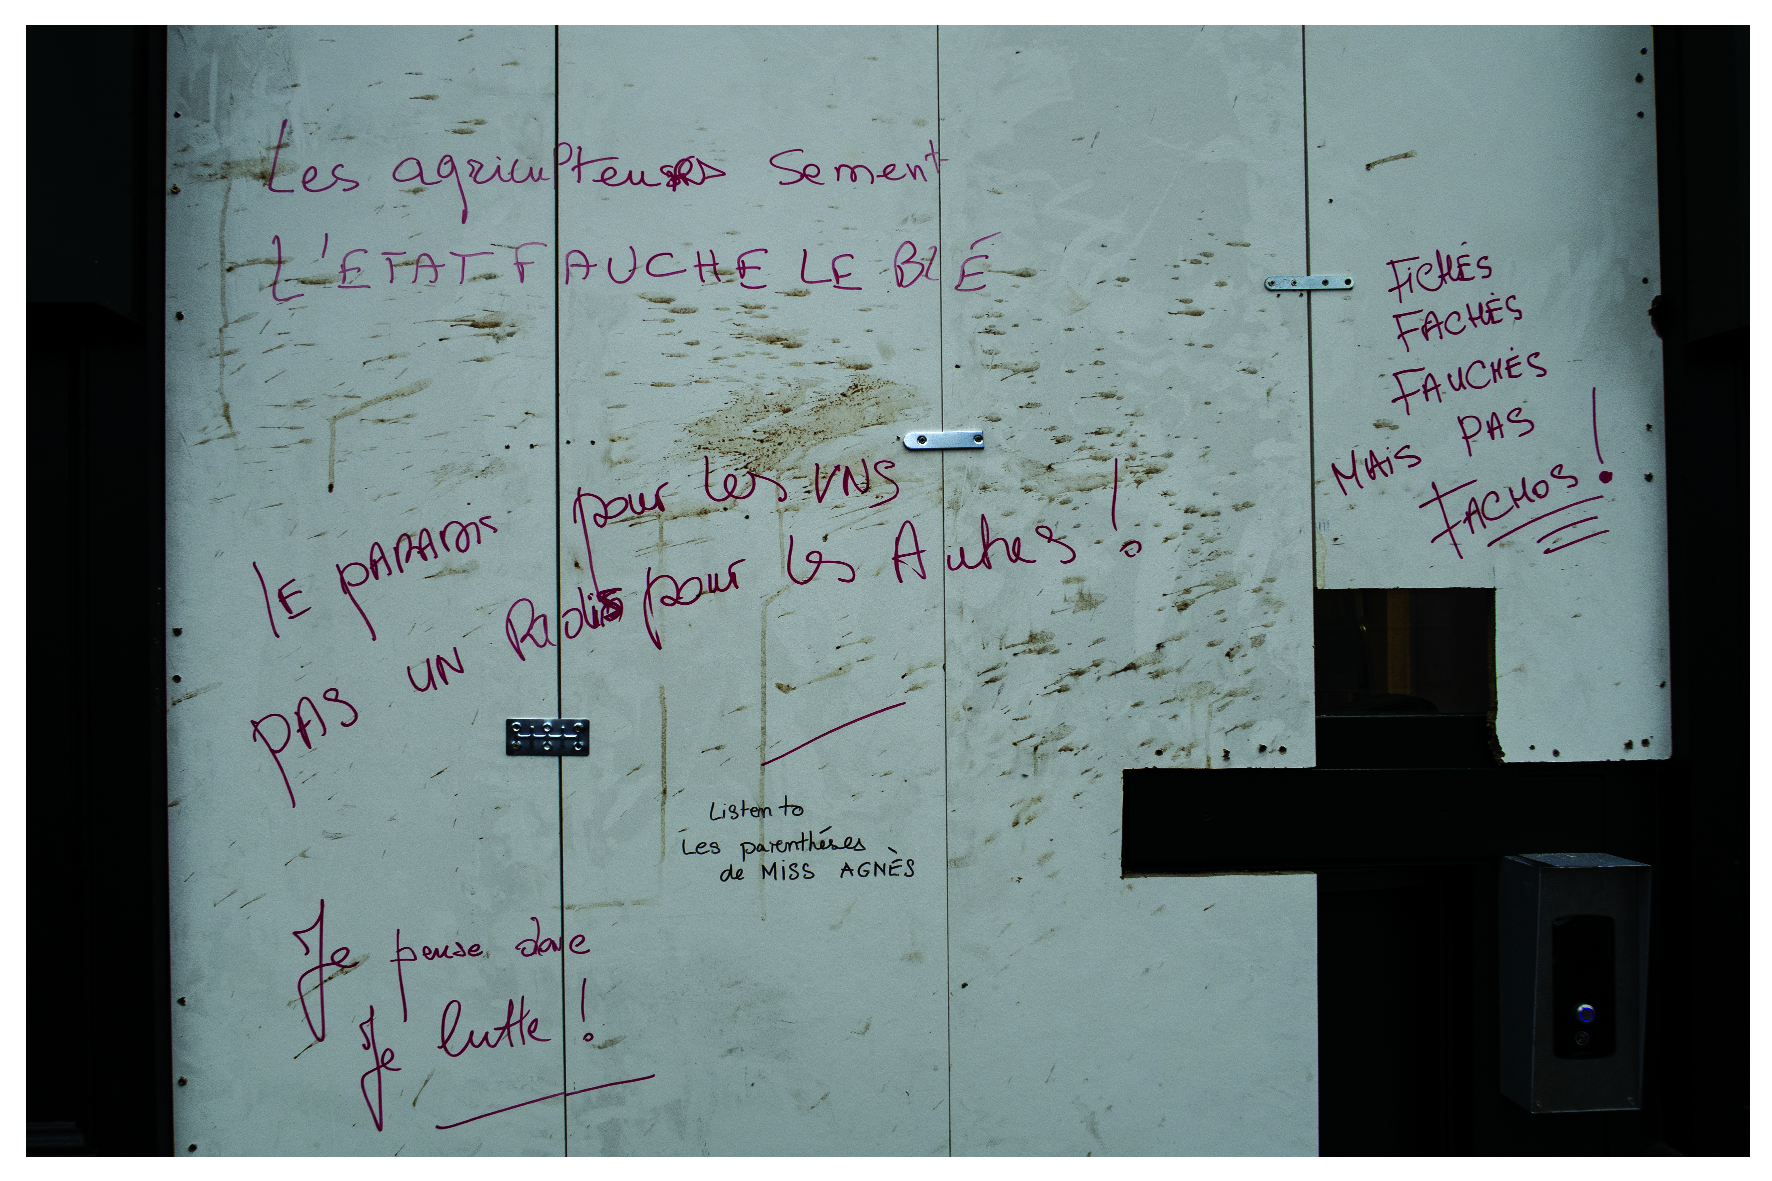 Les agriculteurs sement
L'ETAT FAUCHE LE BLÉ
FICHÉS
FACHÉS
FAUCHÉS
MAIS PAS
FACHOS !
LE PARADIS pour les UNS
PAS UN Radis pour les Autres !
Listen to
Les parenthèses
de MISS AGNÈS
Je pense donc
Je lutte !